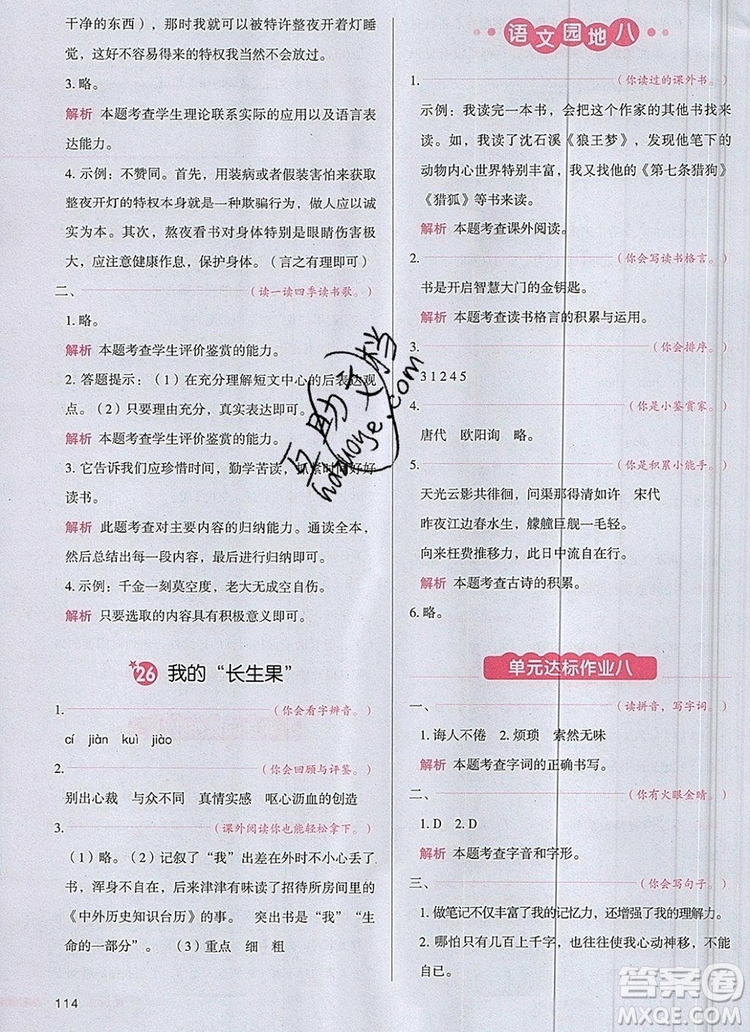 干净的东西），那时我可以被特许整夜开着灯睡
觉，这么不容易得来的特权可以看书，太高兴了。
3. 略。
解析 本题考查学生理论联系实际的应用以及语言表
达能力。
4. 示例：不赞同。首先，用装病或者假装害怕来获取
整夜开灯的特权本身就是一种欺骗行为，做人应以
诚实为本。其次，熬夜看书对身体特别是眼睛伤害极
大。要注意健康作息，保护身体。（言之有理即可）
二、（读一读四季读书歌。）
1. 略。
解析 本题考查学生评价鉴赏的能力。
2. 答题提示：（1）在充分理解短文中心的后表达观
点。（2）只要理由充分，真实具体即可。
解析 本题考查学生评价鉴赏的能力。
3. 它告诉我们应珍惜时间，勤学苦读，抓紧时间好好
读书。
解析 此题考查对主要内容的归纳能力。通读全本，
然后总结出每一段写了什么，最后归纳即可。
4. 示例：千金一刻莫空度，老大无成空自伤。
解析 只要选取的内容具有积极意义即可。
26 我的“长生果”
1.（你会看字辨音。）
cí jiàn kuì jiào
2.（你会回顾与评鉴。）
别出心裁 与众不同 真情实感 呕心沥血的创造
3.（课外阅读你也能轻松拿下。）
（1）略。（2）记叙了“我”出差在外时不小心丢了
书，浑身不自在，后来津津有味读了招待所房间里的
《中外历史知识台历》的事。 突出书是“我”“生
命的一部分”。（3）重点 细 粗
114
语文园地八
1.（你读过的课外书。）
示例：我读完一本书，会把这个作家的其他书找来
读。如，我读了沈石溪《狼王梦》，发现他笔下的
动物内心世界特别丰富，我又找他的《第七条猎狗》
《猎狐》等书来读。
解析 本题考查课外阅读。
2.（你会写读书格言。）
书是开启智慧大门的金钥匙。
解析 本题考查读书格言的积累与运用。
3.（你会排序。）
3 1 2 4 5
4.（你是小鉴赏家。）
唐代 欧阳询 略。
5.（你是积累小能手。）
天光云影共徘徊 问渠那得清如许 宋代
昨夜江边春水生，艨艟巨舰一毛轻。
向来枉费推移力，此日中流自在行。
解析 本题考查古诗的积累。
6. 略。
单元达标作业八
一、（读拼音，写字词。）
1. 诲人不倦 2. 烦琐 索然无味
解析 本题考查字词的正确书写。
二、（你有火眼金睛。）
1. D 2. D
解析 本题考查字音和字形。
三、（你会写句子。）
1. 做笔记不仅丰富了我的记忆力，还增强了我的理解力。
2. 哪怕只有几百上千字，也往往使我心动神移，不能
自已。
互助文档
hazuoye.com
答案圈
MXQE.COM